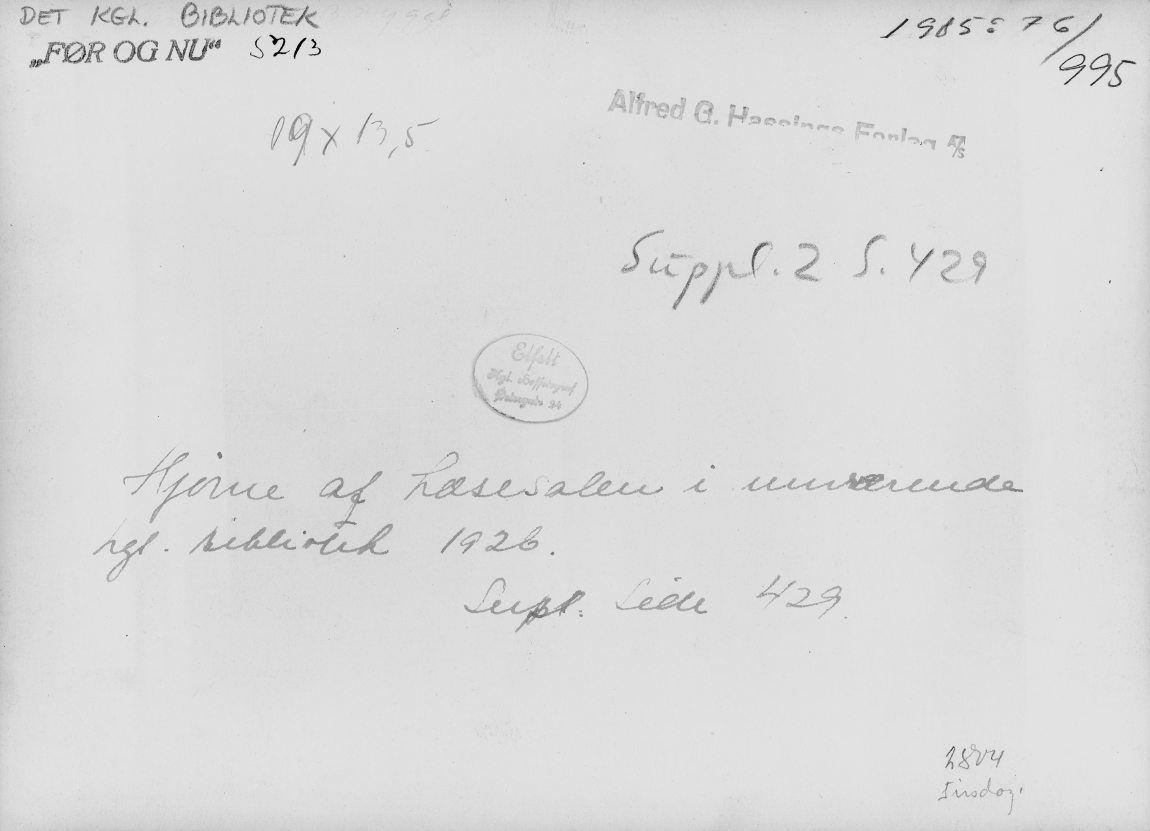 DET KGL. BIBLIOTEK
„FØR OG NU“ 5213
1985: 76/
995
19 x 13,5
Alfred G. Hassings Forlag A/S
Suppl. 2 S. 429
Elfelt
Kgl. Hoffotograf
Østergade 24
Hjørne af Læsesalen i nuværende
kgl. Bibliotek 1926.
Supl. Side 429.
2804